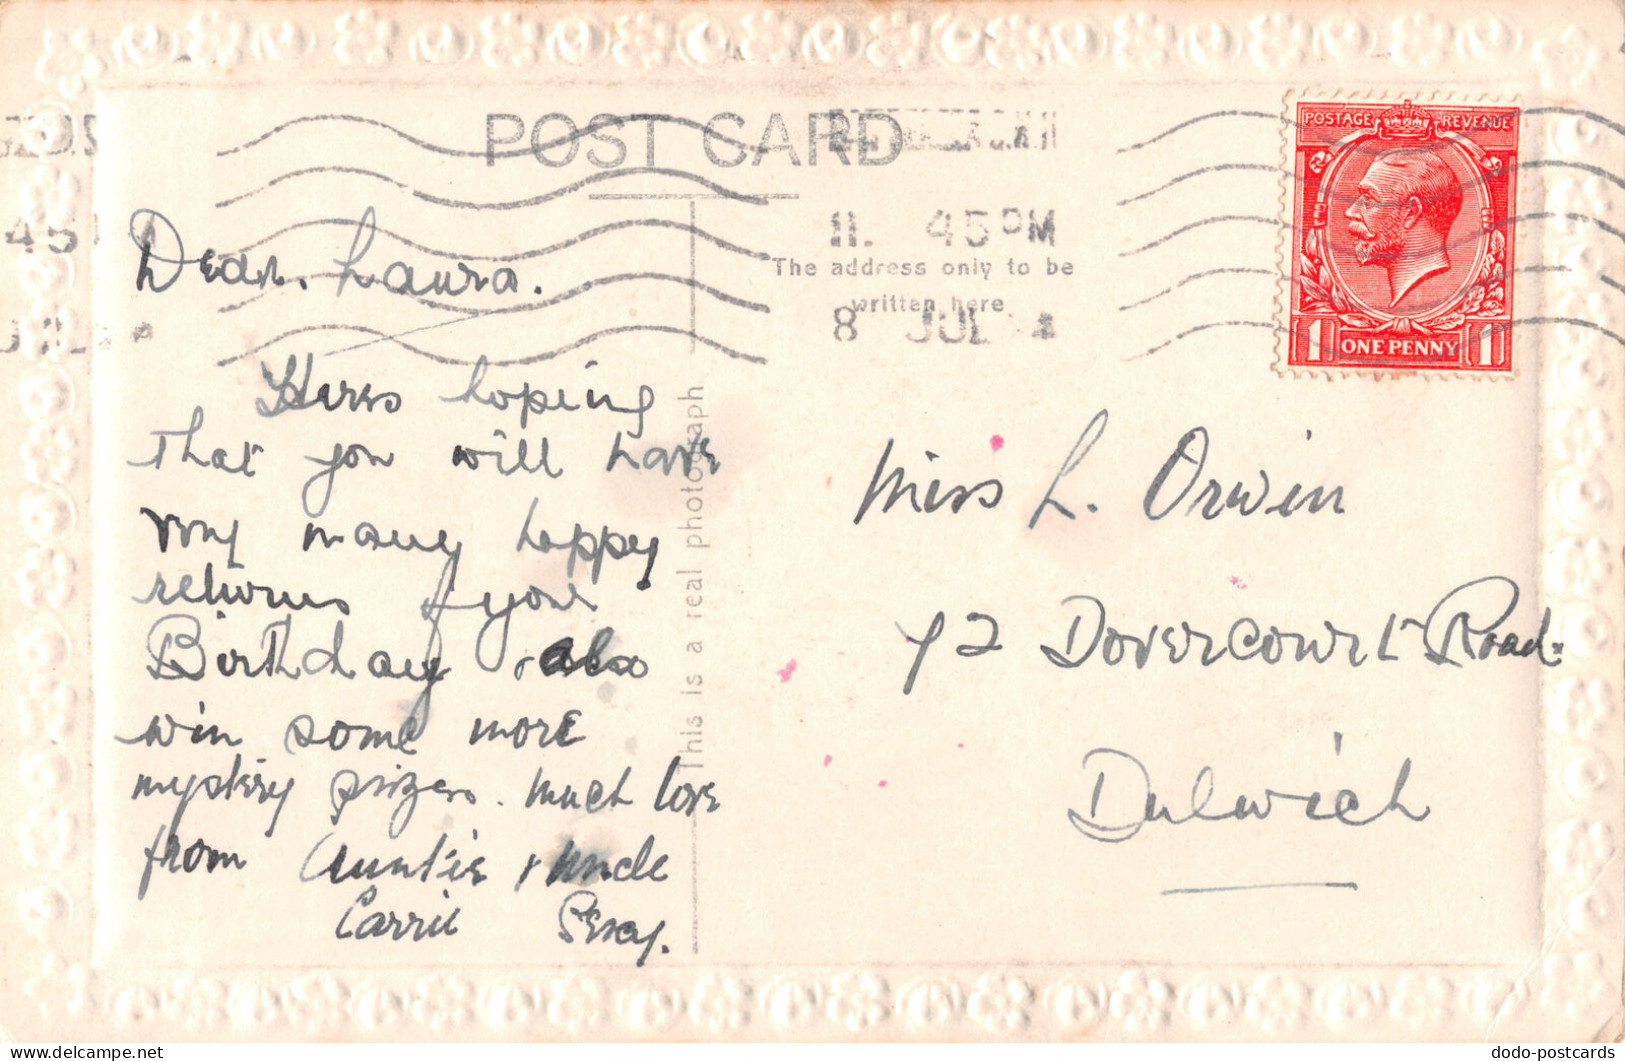 POST CARD
11. 45 PM
8 JUL
The address only to be
written here
POSTAGE REVENUE
1 ONE PENNY 1
This is a real photograph
Dear. Laura.
Heres hoping
that you will have
very many happy
returns of your
Birthday also
win some more
mystery prizes. Much love
from Auntie & Uncle
Carrie Percy.
Miss L. Orwin
72 Dovercourt Road.
Dulwich
dodo-postcards